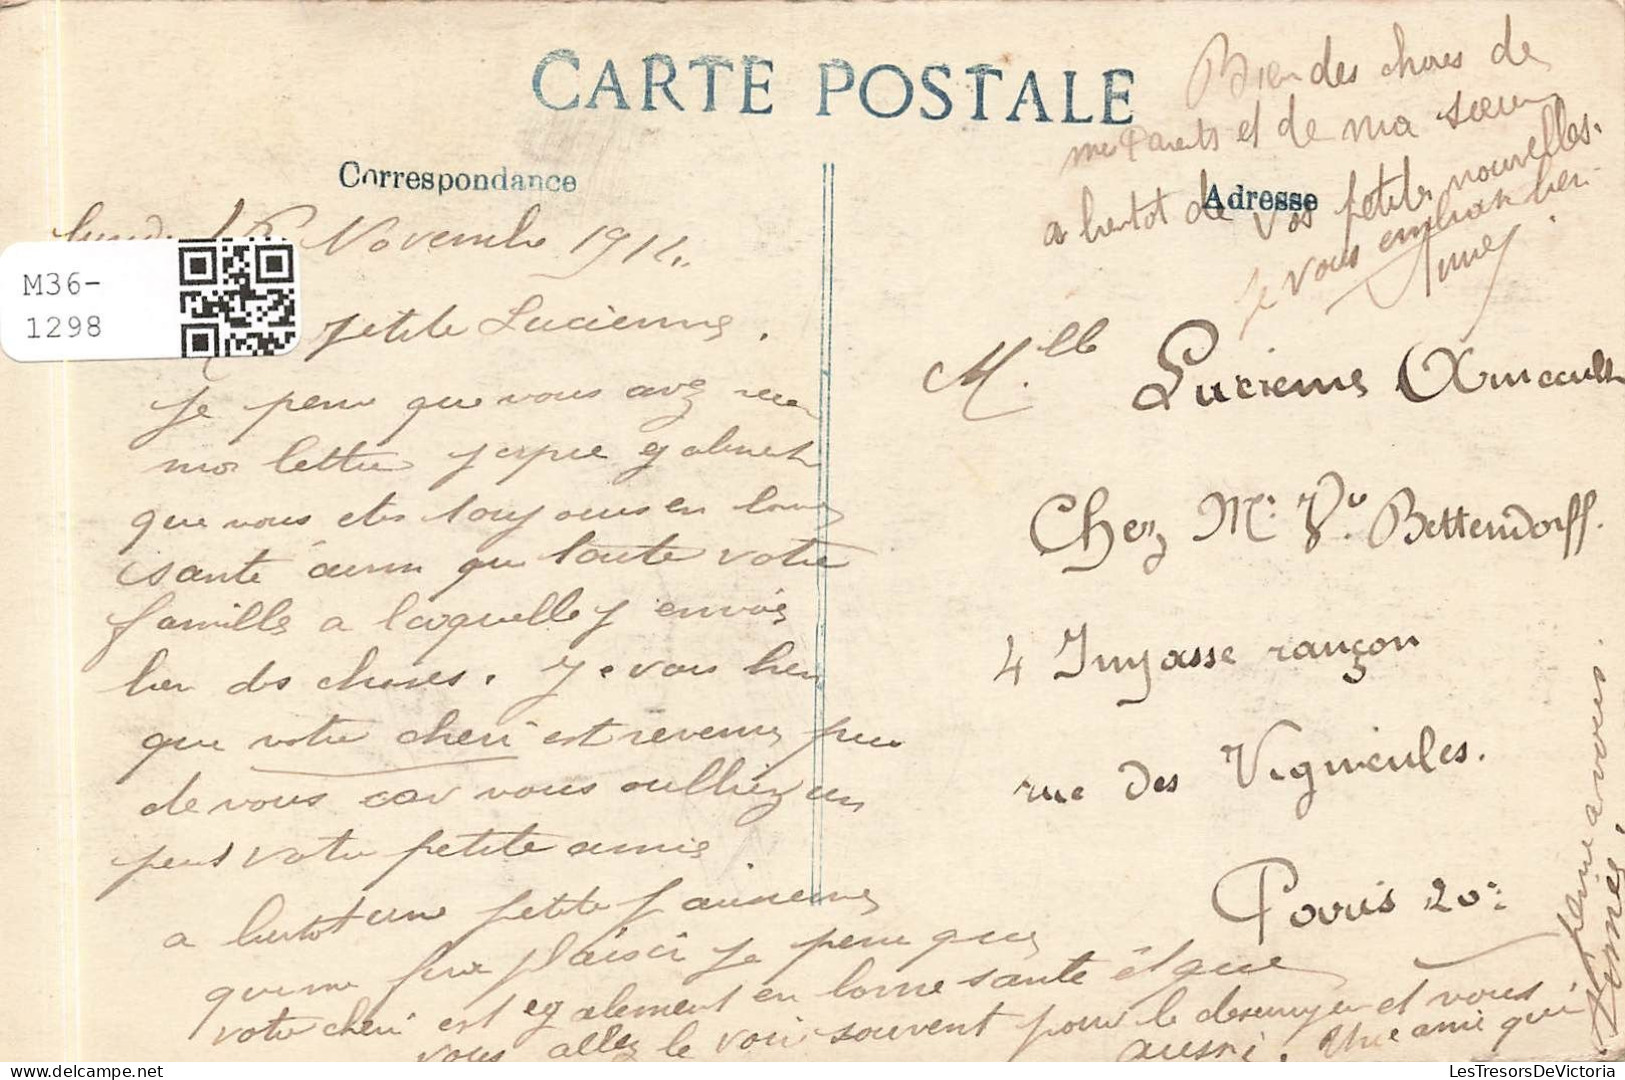 CARTE POSTALE
Correspondance
Adresse
M36-
1298
Lundi 16 Novembre 1914.
petite Lucienne.
Je pense que vous avez recu
ma lettre j espere egalement
que vous etes toujours en bonne
sante aussi que toute votre
famille a laquelle j envoie
bien des choses. Je vois bien
que votre cheri est revenu pres
de vous car vous oulliez un
peus votre petite amie.
a bientot une petite
plaisir je pense que
votre cheri est egalement en bonne sante et que
vous allez le voir souvent pour le desennuyer et vous
aussi. Une amie qui
pense a vous.
Bien des choses de
mes Parents et de ma soeur
a bientot de vos petites nouvelles.
Je vous embrasse bien
Mlle Lucienne
Chez Me Ve Bettendorff.
4 Impasse rançon
rue des Vignieules.
Paris 20e
LesTresorsDeVictoria